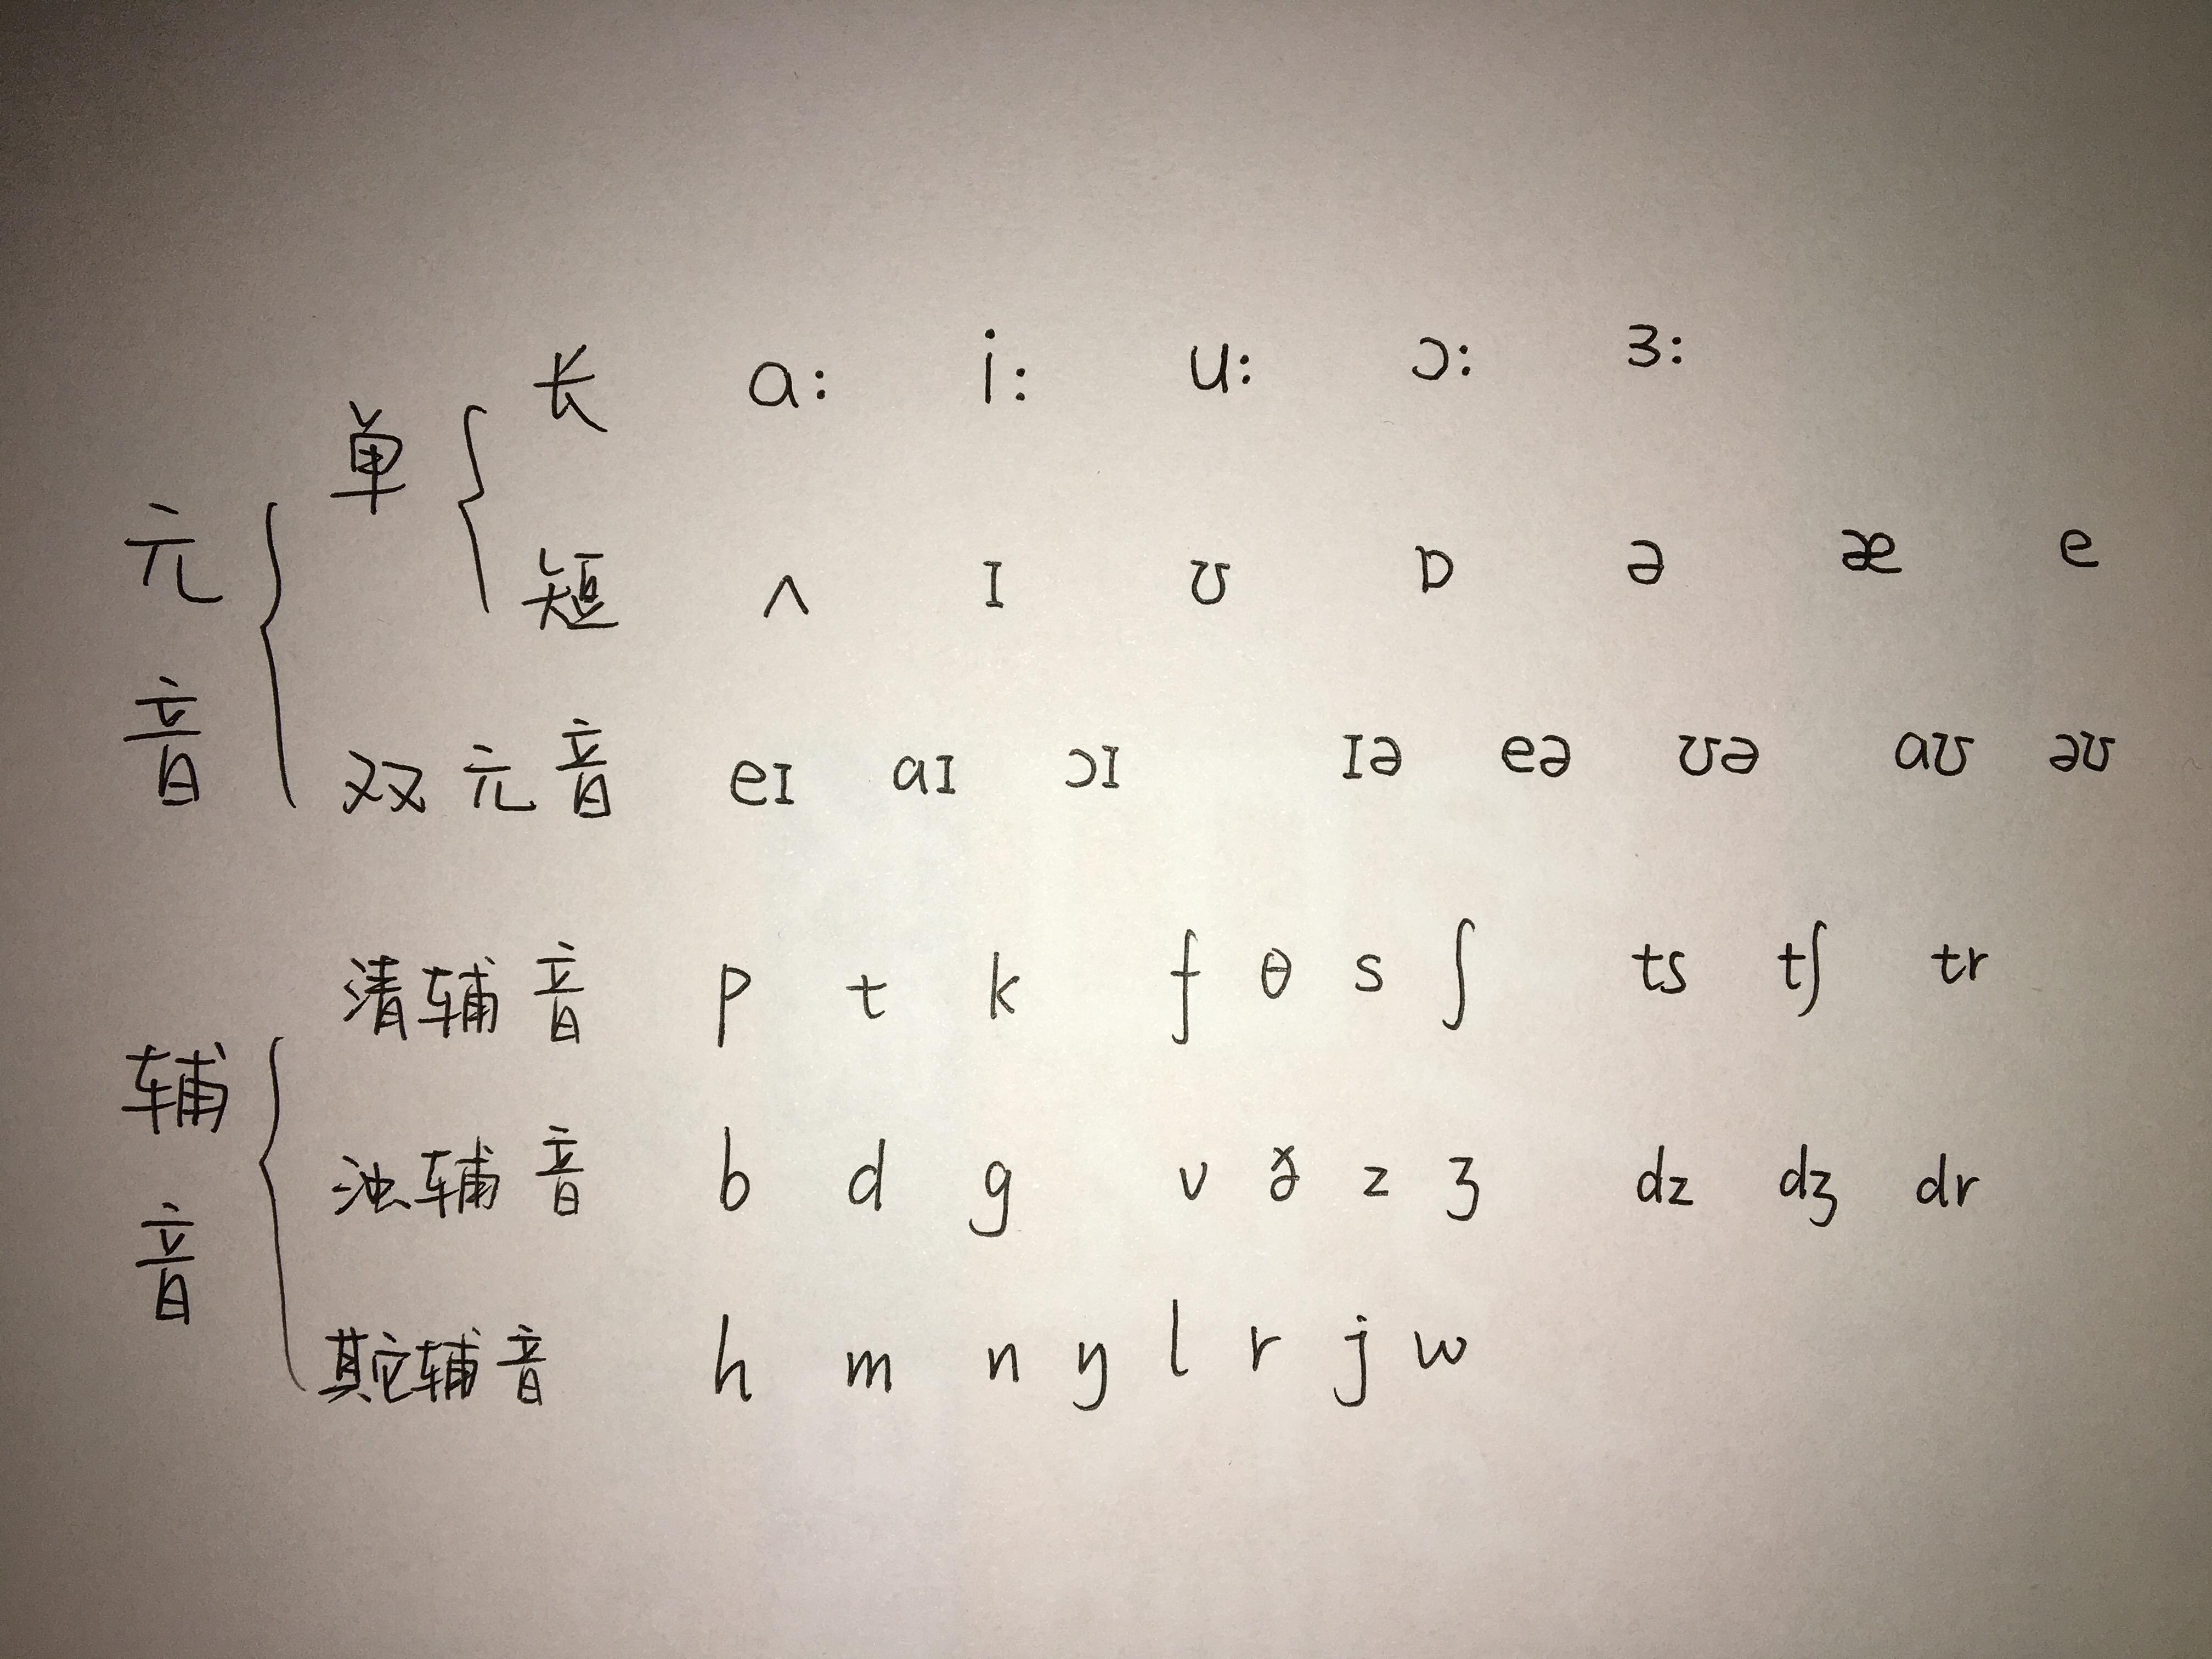 长 ɑ: i: u: ɔ: ɜ:
单
短 ʌ ɪ ʊ ɒ ə æ e
元音
双元音 eɪ aɪ ɔɪ ɪə eə ʊə aʊ əʊ
清辅音 p t k f θ s ʃ ts tʃ tr
辅音
浊辅音 b d g v ð z ʒ dz dʒ dr
其它辅音 h m n ŋ l r j w